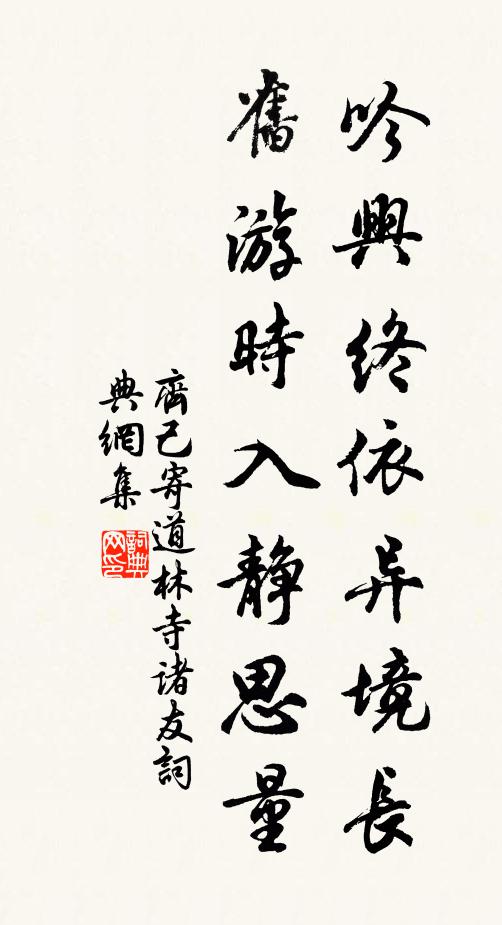 吟興終依异境長
舊游時入静思量
齊己寄道林寺诸友詞
典網集
詞典
网印